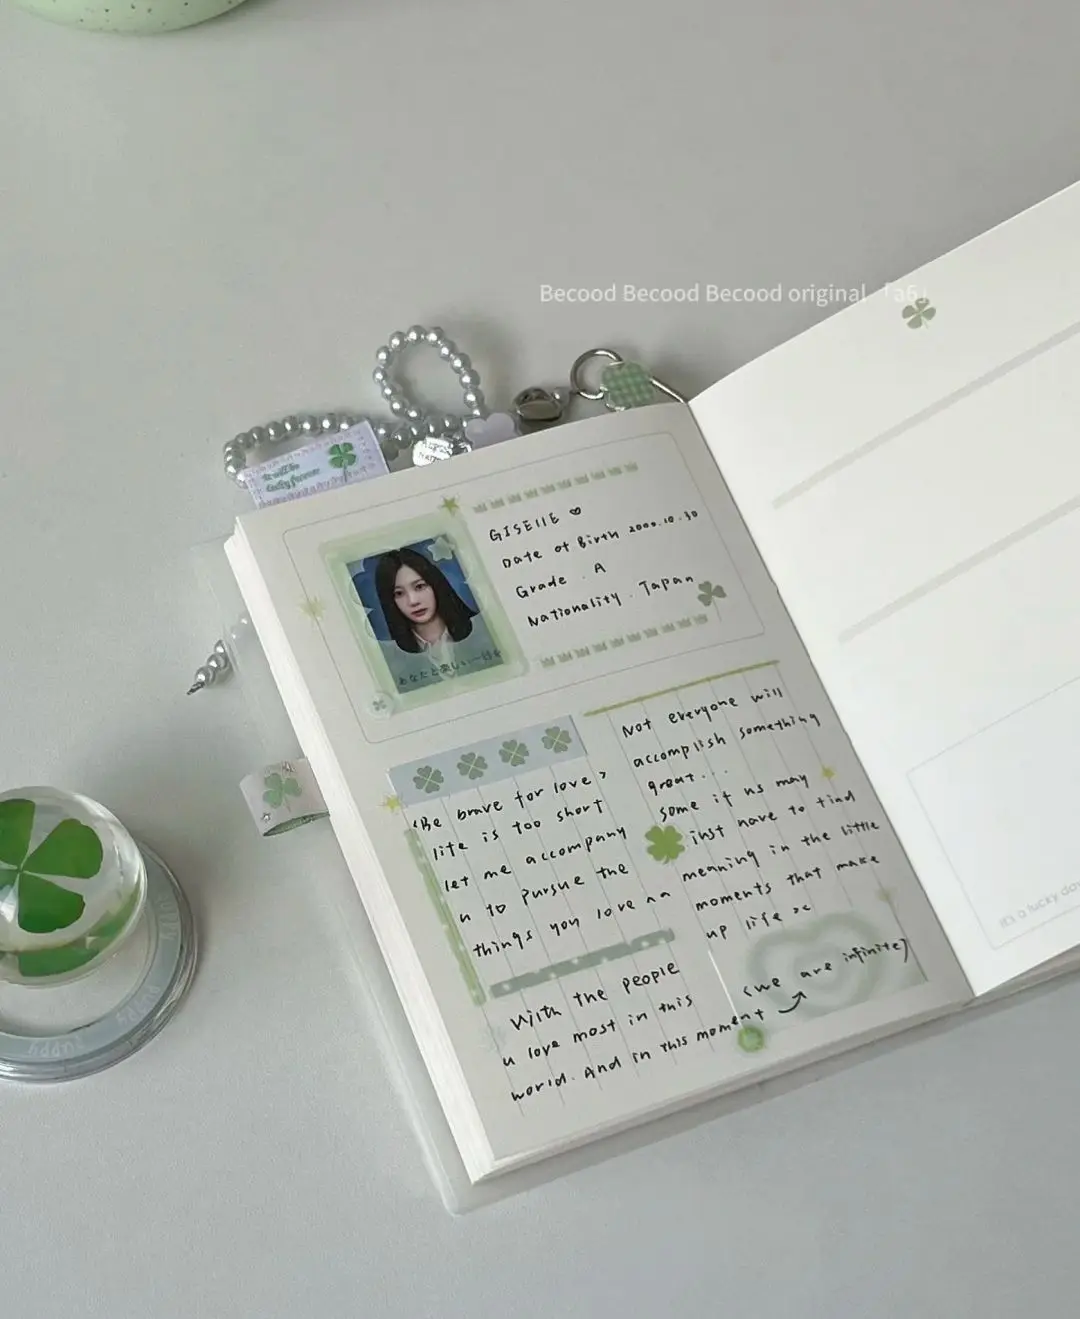 Becood Becood Becood original 「a6」
It will be
lucky forever
GISEllE ♡
Date of Birth 2000.10.30
Grade . A
Nationality . Japan
あなたと楽しい一日を
‹Be brave for love›
life is too short
let me accompany
u to pursue the
things you love ^^
With the people
u love most in this
world. And in this moment
Not everyone will
accomplish something
great...
some if us may
just have to find
meaning in the little
moments that make
up life ><
‹we are infinite›
It's a lucky day
puppy